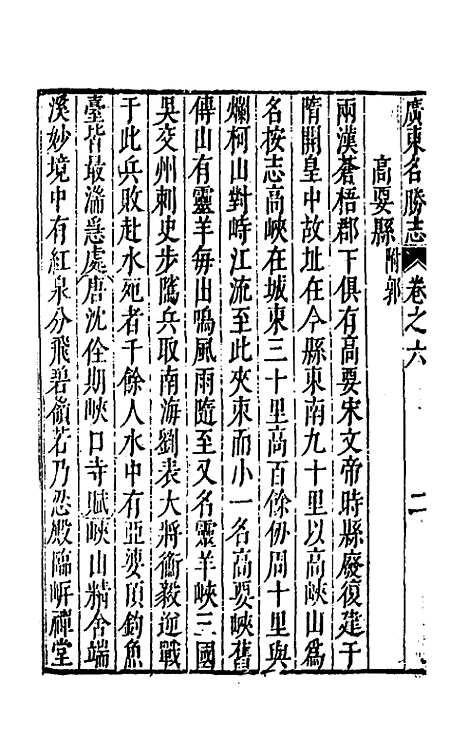 廣東名勝志 卷之六 二
高要縣 附郭
兩漢蒼梧郡下俱有高要宋文帝時縣廢復建于
隋開皇中故址在今縣東南九十里以高峽山爲
名按志高峽在城東三十里高百餘仞周十里與
爛柯山對峙江流至此夾束而小一名高要峽舊
傳山有靈羊每出鳴風雨隨至又名靈羊峽三國
吳交州刺史步隲兵取南海劉表大將衞毅迎戰
于此兵敗赴水死者千餘人水中有亞婆頂釣魚
臺皆最湍急處唐沈佺期峽口寺賦峽山精舍端
溪妙境中有紅泉分飛碧嶺若乃忍殿臨嶼禪堂